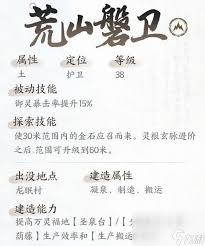 荒山磐卫
属性 定位 等级
土 护卫 38
被动技能
御灵暴击率提升15%
探索技能
使30米范围内的金石应召而来。灵根玄脉进阶
之后，范围可升级到60米。
出没地点 建造属性
龙眠村 凝泉、制造、搬运
建造能力
提高万灵福地【圣泉台】/【
荫藤】生产效率和【 】生产效率